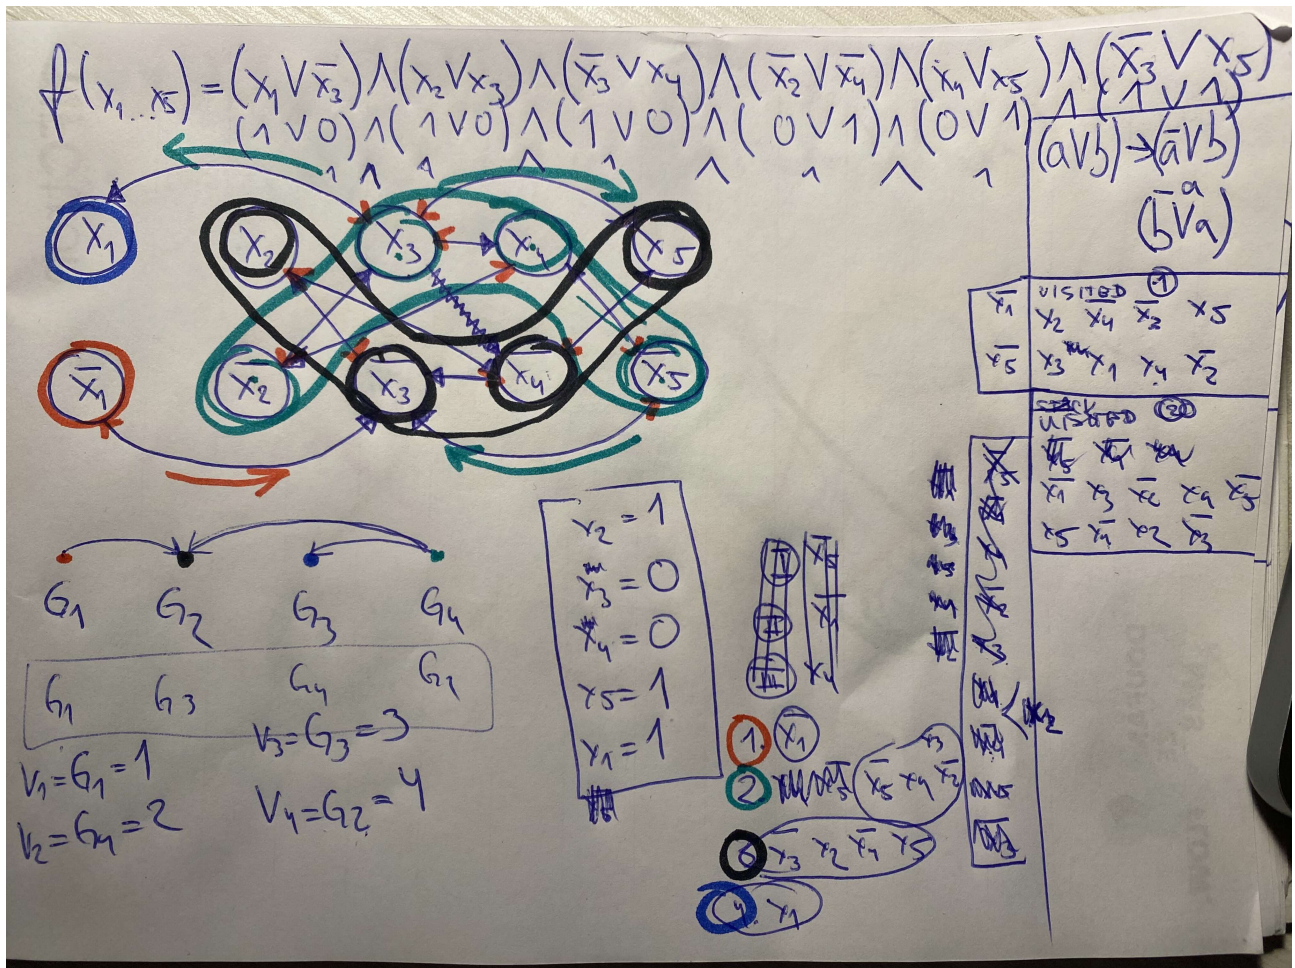 f(x₁...x₅) = (x₁ ∨ x̄₃) ∧ (x₂ ∨ x₃) ∧ (x̄₃ ∨ x₄) ∧ (x̄₂ ∨ x̄₄) ∧ (x₄ ∨ x₅) ∧ (x̄₃ ∨ x₅)
(1 ∨ 0) ∧ (1 ∨ 0) ∧ (1 ∨ 0) ∧ (0 ∨ 1) ∧ (0 ∨ 1) ∧ (1 ∨ 1)
1 ∧ 1 ∧ 1 ∧ 1 ∧ 1
(a∨b) → (ā∨b)
a
(b̄∨a)
x₁ x₂ x₃ x₄ x₅
x̄₁ x̄₂ x̄₃ x̄₄ x̄₅
x̄₁ VISITED 1
x₂ x̄₄ x̄₃ x₅
x̄₅ x₃ x₁ x₄ x̄₂
VISITED 2
x̄₁ x₃ x̄₂ x₄ x̄₅
x₅ x̄₄ x₂ x̄₃
G₁ G₂ G₃ G₄
G₁ G₃ G₄ G₂
V₁=G₁=1
V₂=G₄=2
V₃=G₃=3
V₄=G₂=4
x₂=1
x₃=0
x₄=0
x₅=1
x₁=1
1. x̄₁
2. x̄₅ x₄ x̄₂ x₃
x̄₃ x₂ x̄₄ x₅
4. x₁